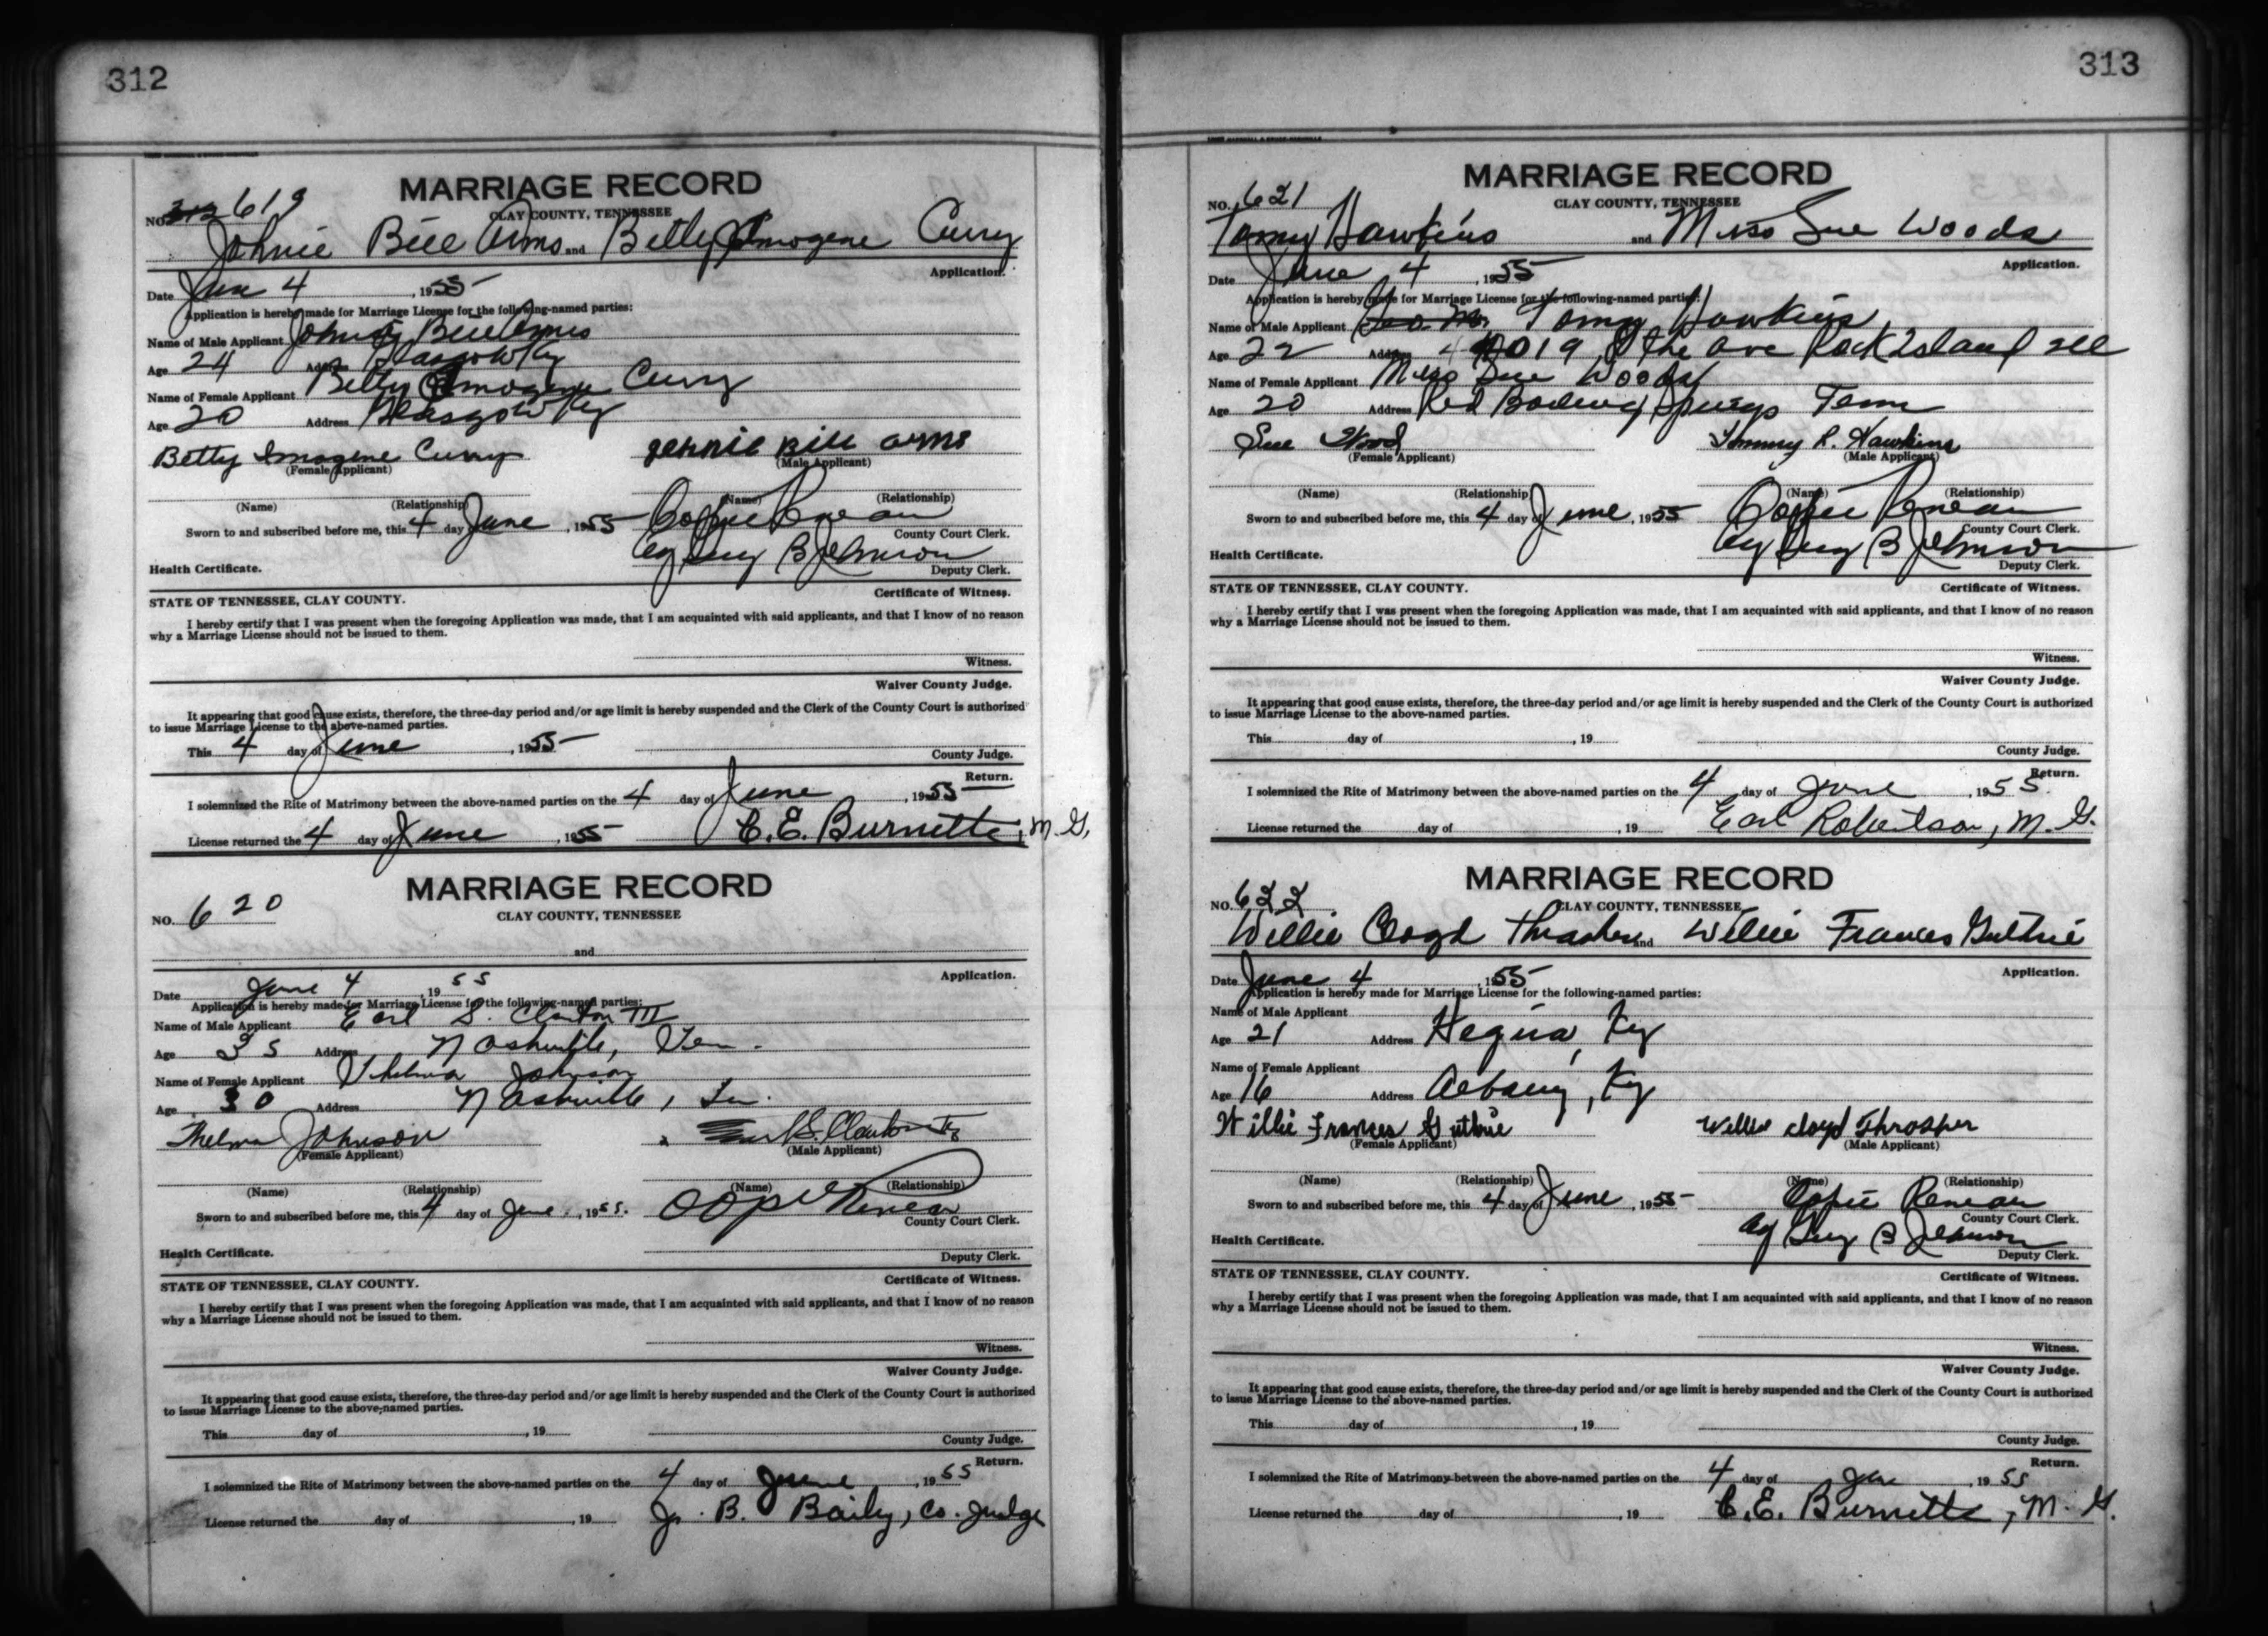 312
MARRIAGE RECORD
NO. 312 619
CLAY COUNTY, TENNESSEE
Johnie Bill Arms and Betty Imogene Curry
Application.
Date June 4, 1955
Application is hereby made for Marriage License for the following-named parties:
Name of Male Applicant Johnie Bill Arms
Age 24 Address Glasgow Ky
Name of Female Applicant Betty Imogene Curry
Age 20 Address Glasgow Ky
Betty Imogene Curry Johnnie Bill Arms
(Female Applicant) (Male Applicant)
(Name) (Relationship) (Name) (Relationship)
Sworn to and subscribed before me, this 4 day of June, 1955 Coppie Reneau
County Court Clerk.
By Guy B Johnson
Health Certificate. Deputy Clerk.
STATE OF TENNESSEE, CLAY COUNTY. Certificate of Witness.
I hereby certify that I was present when the foregoing Application was made, that I am acquainted with said applicants, and that I know of no reason
why a Marriage License should not be issued to them.
Witness.
Waiver County Judge.
It appearing that good cause exists, therefore, the three-day period and/or age limit is hereby suspended and the Clerk of the County Court is authorized
to issue Marriage License to the above-named parties.
This 4 day of June, 1955
County Judge.
Return.
I solemnized the Rite of Matrimony between the above-named parties on the 4 day of June, 1955
License returned the 4 day of June, 1955 C.E. Burnette, M.G.
MARRIAGE RECORD
NO. 620
CLAY COUNTY, TENNESSEE
and
Application.
Date June 4, 1955
Application is hereby made for Marriage License for the following-named parties:
Name of Male Applicant Earl S. Clanton III
Age 35 Address Nashville, Ten.
Name of Female Applicant Thelma Johnson
Age 30 Address Nashville, Ten.
Thelma Johnson x Earl S. Clanton III
(Female Applicant) (Male Applicant)
(Name) (Relationship) (Name) (Relationship)
Sworn to and subscribed before me, this 4 day of June, 1955. Coppie Reneau
County Court Clerk.
Health Certificate. Deputy Clerk.
STATE OF TENNESSEE, CLAY COUNTY. Certificate of Witness.
I hereby certify that I was present when the foregoing Application was made, that I am acquainted with said applicants, and that I know of no reason
why a Marriage License should not be issued to them.
Witness.
Waiver County Judge.
It appearing that good cause exists, therefore, the three-day period and/or age limit is hereby suspended and the Clerk of the County Court is authorized
to issue Marriage License to the above-named parties.
This day of, 19
County Judge.
Return.
I solemnized the Rite of Matrimony between the above-named parties on the 4 day of June, 1955
License returned the day of, 19 Jr. B. Baily, Co. Judge
313
MARRIAGE RECORD
NO. 621
CLAY COUNTY, TENNESSEE
Tomy Hawkins and Miss Sue Woods
Application.
Date June 4, 1955
Application is hereby made for Marriage License for the following-named parties:
Name of Male Applicant Tomy Hawkins
Age 22 Address 4019 8 the ave Rock Island Ill
Name of Female Applicant Miss Sue Woods
Age 20 Address Red Boiling Springs Tenn
Sue Wood Tommy R. Hawkins
(Female Applicant) (Male Applicant)
(Name) (Relationship) (Name) (Relationship)
Sworn to and subscribed before me, this 4 day of June, 1955 Coppie Reneau
County Court Clerk.
By Guy B Johnson
Health Certificate. Deputy Clerk.
STATE OF TENNESSEE, CLAY COUNTY. Certificate of Witness.
I hereby certify that I was present when the foregoing Application was made, that I am acquainted with said applicants, and that I know of no reason
why a Marriage License should not be issued to them.
Witness.
Waiver County Judge.
It appearing that good cause exists, therefore, the three-day period and/or age limit is hereby suspended and the Clerk of the County Court is authorized
to issue Marriage License to the above-named parties.
This day of, 19
County Judge.
Return.
I solemnized the Rite of Matrimony between the above-named parties on the 4 day of June, 1955.
License returned the day of, 19 Earl Robertson, M.G.
MARRIAGE RECORD
NO. 622
CLAY COUNTY, TENNESSEE
Willie Cloyd Thrasher and Willie Frances Guthrie
Application.
Date June 4, 1955
Application is hereby made for Marriage License for the following-named parties:
Name of Male Applicant
Age 21 Address Hegira, Ky
Name of Female Applicant
Age 16 Address Albany, Ky
Willie Frances Guthrie Willie Cloyd Thrasher
(Female Applicant) (Male Applicant)
(Name) (Relationship) (Name) (Relationship)
Sworn to and subscribed before me, this 4 day of June, 1955 Coppie Reneau
County Court Clerk.
By Guy B Johnson
Health Certificate. Deputy Clerk.
STATE OF TENNESSEE, CLAY COUNTY. Certificate of Witness.
I hereby certify that I was present when the foregoing Application was made, that I am acquainted with said applicants, and that I know of no reason
why a Marriage License should not be issued to them.
Witness.
Waiver County Judge.
It appearing that good cause exists, therefore, the three-day period and/or age limit is hereby suspended and the Clerk of the County Court is authorized
to issue Marriage License to the above-named parties.
This day of, 19
County Judge.
Return.
I solemnized the Rite of Matrimony between the above-named parties on the 4 day of June, 1955
License returned the day of, 19 C.E. Burnette, M.G.